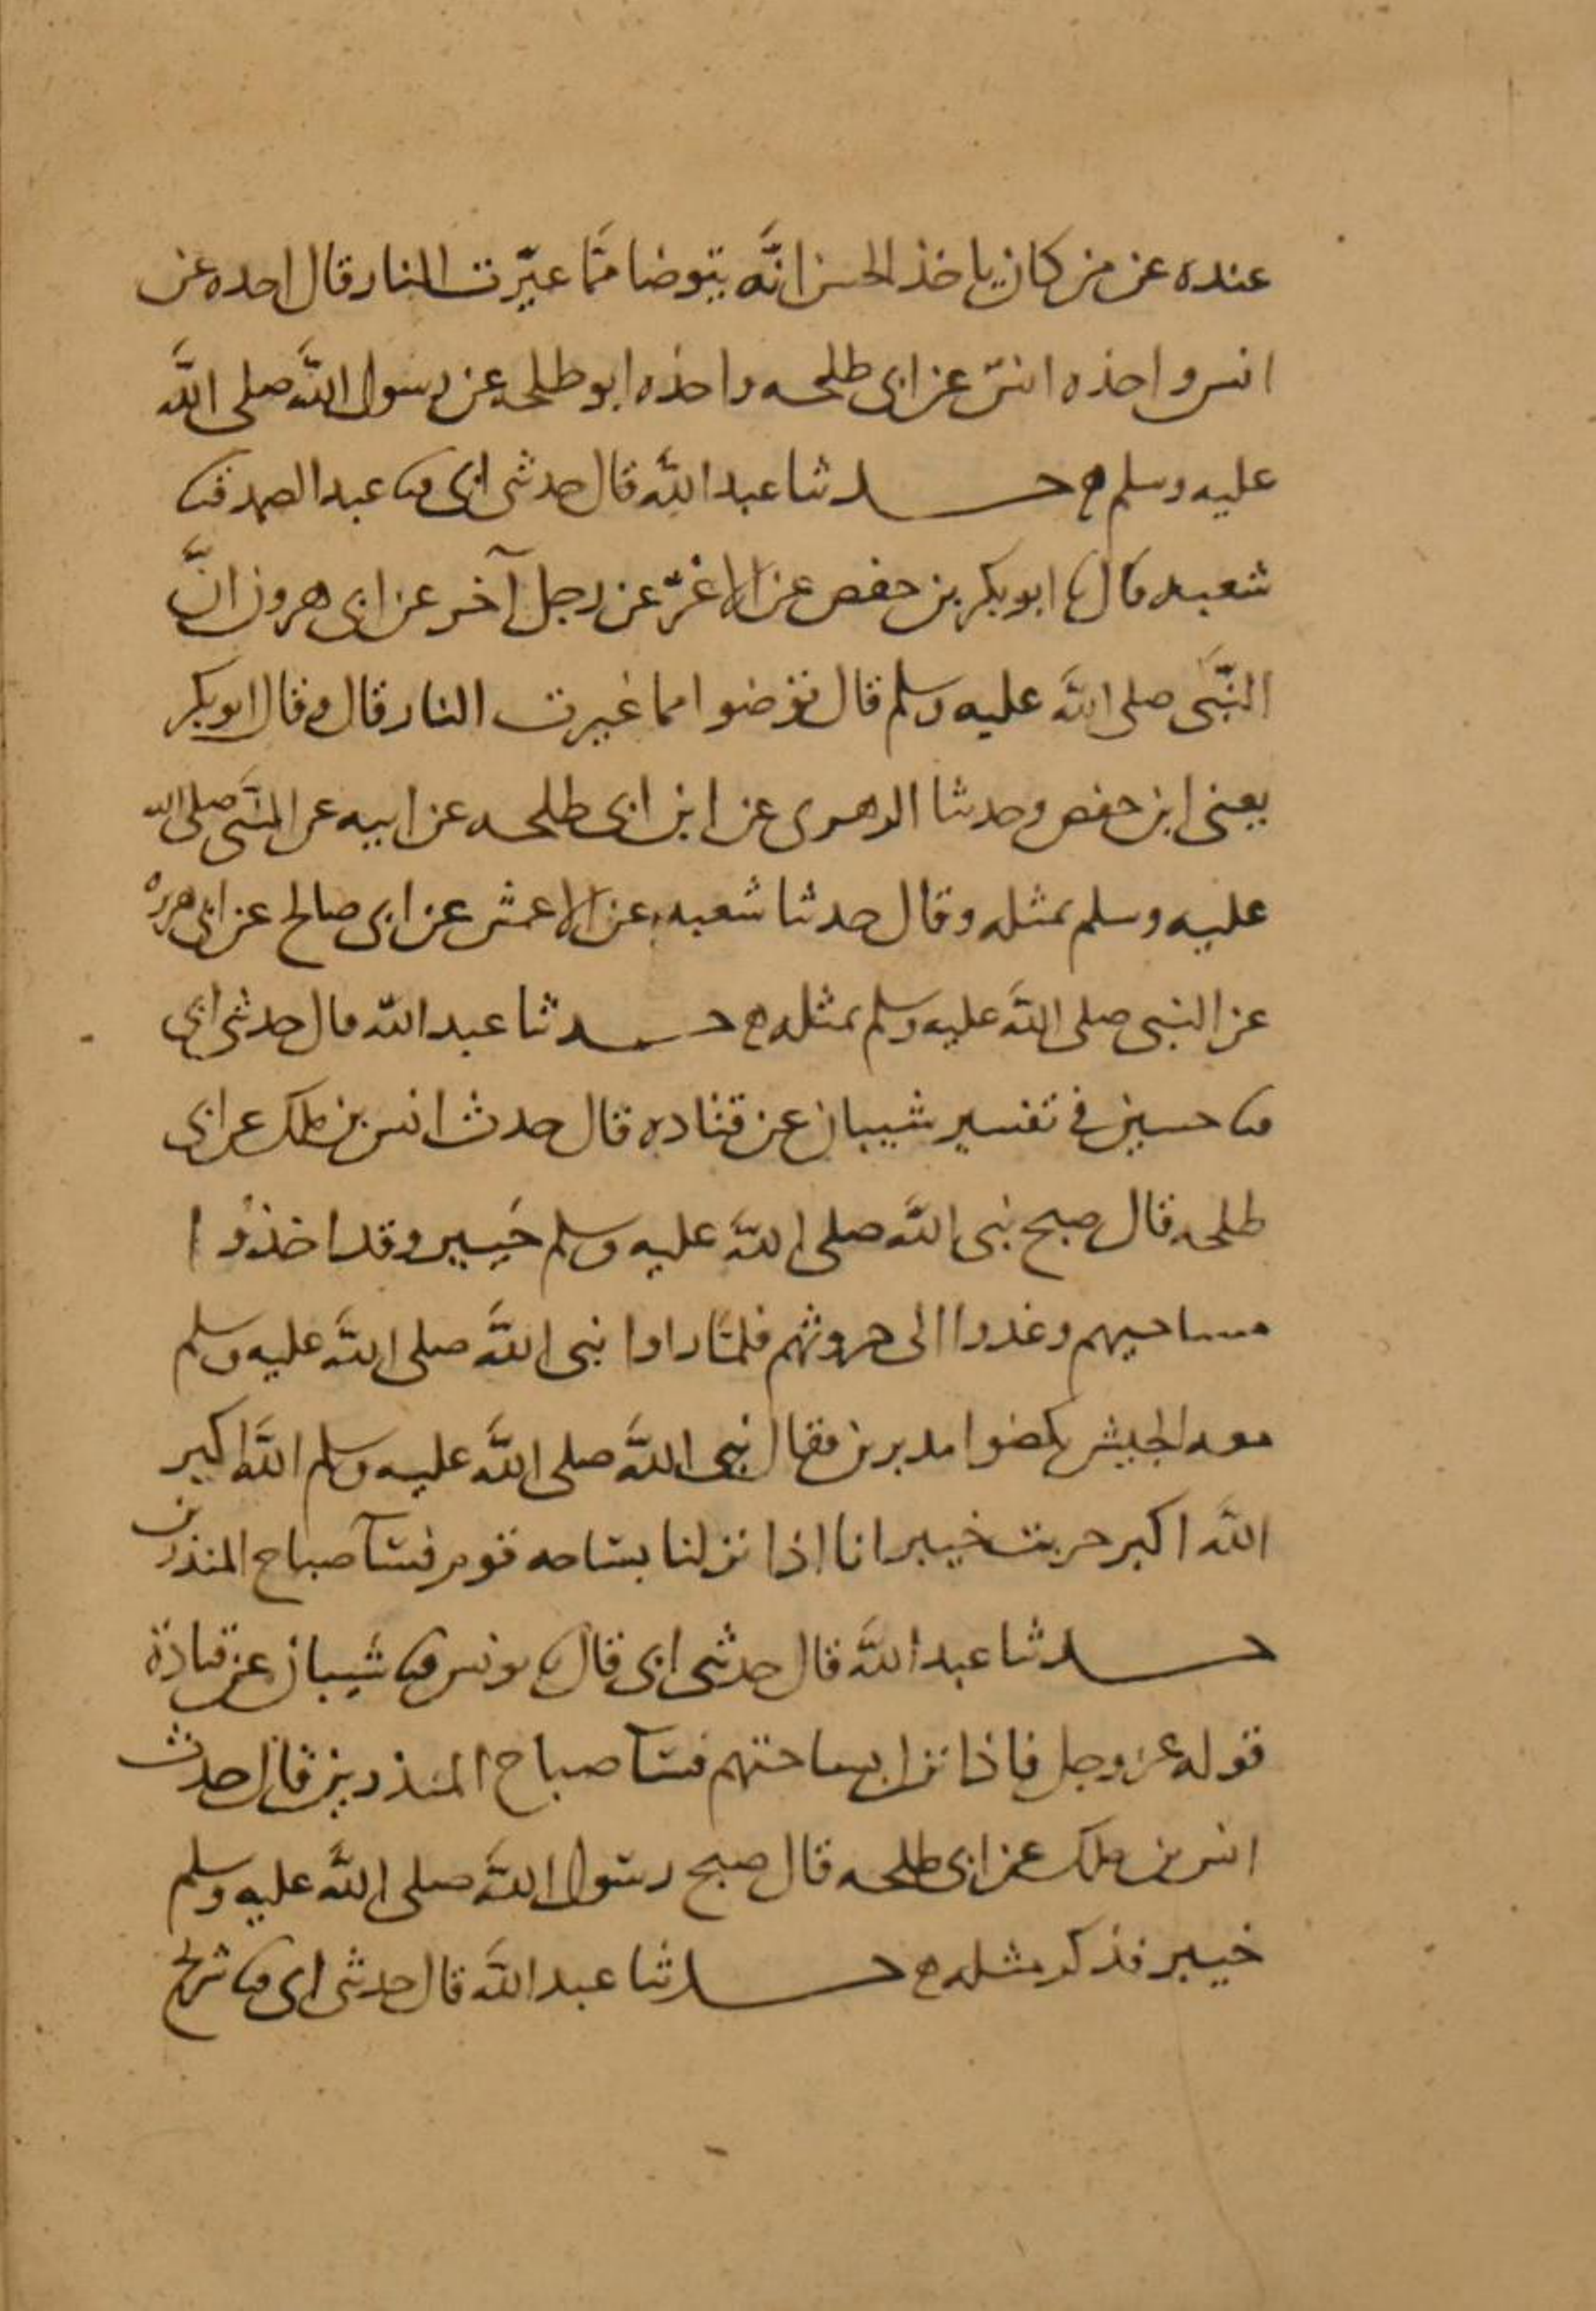 عنده عن من كان ياخذ الحسن انّه يتوضا ممّا غيّرت النار قال اخده عن
انس واخذه انسٌ عن ابى طلحه واخذه ابو طلحه عن رسول اللّه صلى اللّه
عليه وسلم ه حدثنا عبد اللّه قال حدثنى ابى ثنا عبد الصمد ثنا
شعبه قال نا ابو بكر بن حفص عن الاغرّ عن رجل آخر عن ابى هرون انّ
النّبى صلى اللّه عليه وسلم قال توضوا مما غيرت النار قال وقال ابو بكر
يعنى ابن حفص وحدثنا الزهرى عن ابن ابى طلحه عن ابيه عن النّبى صلى الله
عليه وسلم بمثله وقال حدثنا شعبه عن الاعمش عن ابى صالح عن ابى هريره
عن النبى صلى اللّه عليه وسلم بمثله ه حدثنا عبد اللّه قال حدثنى ابى
ثنا حسين فى تفسير شيبان عن قتاده قال حدث انس بن ملك عن ابى
طلحه قال صبح نبى اللّه صلى اللّه عليه وسلم خيبر وقد اخذوا
مساحيهم وغدوا الى حروثهم فلمّا راوا نبى اللّه صلى اللّه عليه وسلم
معه الجيش نكصوا مدبرين فقال نبى اللّه صلى اللّه عليه وسلم اللّه اكبر
اللّه اكبر خربت خيبر انا اذا نزلنا بساحه قوم فسآ صباح المنذرين
حدثنا عبد اللّه قال حدثنى ابى قال نا يونس ثنا شيبان عن قتادة
قوله عز وجل فاذا نزل بساحتهم فسآ صباح المنذرين قال حدث
انس بن ملك عن ابى طلحه قال صبح رسول اللّه صلى اللّه عليه وسلم
خيبر فذكر مثله ه حدثنا عبد اللّه قال حدثنى ابى ثنا شريح